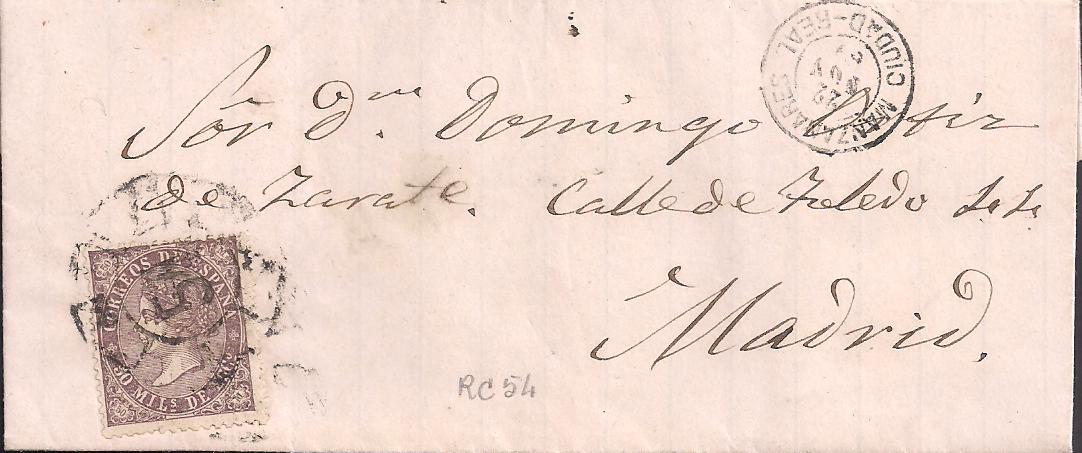 Sor. Dn. Domingo Ortiz
de Zarate. Calle de Toledo
Madrid.
MANZANARES
CIUDAD-REAL
22
NOV
CORREOS DE ESPAÑA
50 MILS. DE
5
RC54